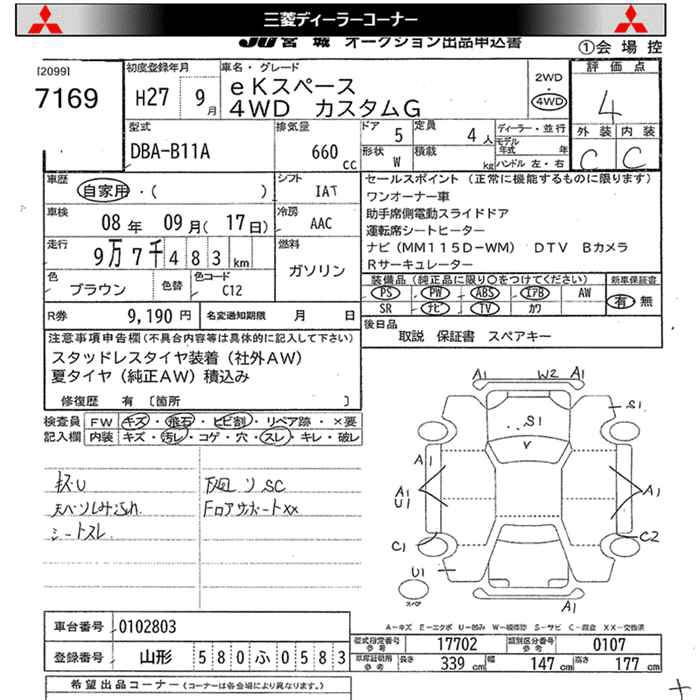 三菱ディーラーコーナー
JU宮城 オークション出品申込書
①会場控
[2099]
7169
初度登録年月
H27 9月
車名・グレード
eKスペース
4WD カスタムG
2WD
・
4WD
評価点
4
外装 内装
C C
型式
DBA-B11A
排気量
660 cc
ドア 5
形状 W
定員 4人
積載 kg
ディーラー・並行
モデル年式 年
ハンドル 左・右
車歴
自家用・( )
シフト
IAT
車検
08年 09月(17日)
冷房
AAC
走行
9万7千483km
燃料
ガソリン
色
ブラウン
色替
色コード
C12
R券 9,190円
名変通知期限 月 日
セールスポイント (正常に機能するものに限ります)
ワンオーナー車
助手席側電動スライドドア
運転席シートヒーター
ナビ(MM115D-WM) DTV Bカメラ
Rサーキュレーター
装備品(純正品に限り○をつけてください)
新車保証書
PS PW ABS エアB AW
SR ナビ TV カワ
有・無
後日品
取説 保証書 スペアキー
注意事項申告欄(不具合内容等は具体的に記入して下さい)
スタッドレスタイヤ装着(社外AW)
夏タイヤ(純正AW)積込み
修復歴 有〔箇所 〕
検査員記入欄
FW キズ・飛石・ヒビ割・リペア跡・×要
内装 キズ・汚レ・コゲ・穴・スレ・キレ・破レ
キズU
シートスレ
下廻りSC
FロアサポートXX
A1 W2 A1
S1
S1
A1
A1
U1
A1
C1
C2
U1
A1
スペア
A-キズ E-エクボ U-凹み W-補修跡 S-サビ C-腐食 XX-交換済
車台番号 0102803
登録番号 山形 580 ふ 0583
型式指定番号 参考 17702
類別区分番号 参考 0107
車庫証明用 参考 長さ 339cm 幅 147cm 高さ 177cm
希望出品コーナー(コーナーは各会場により異なります。)